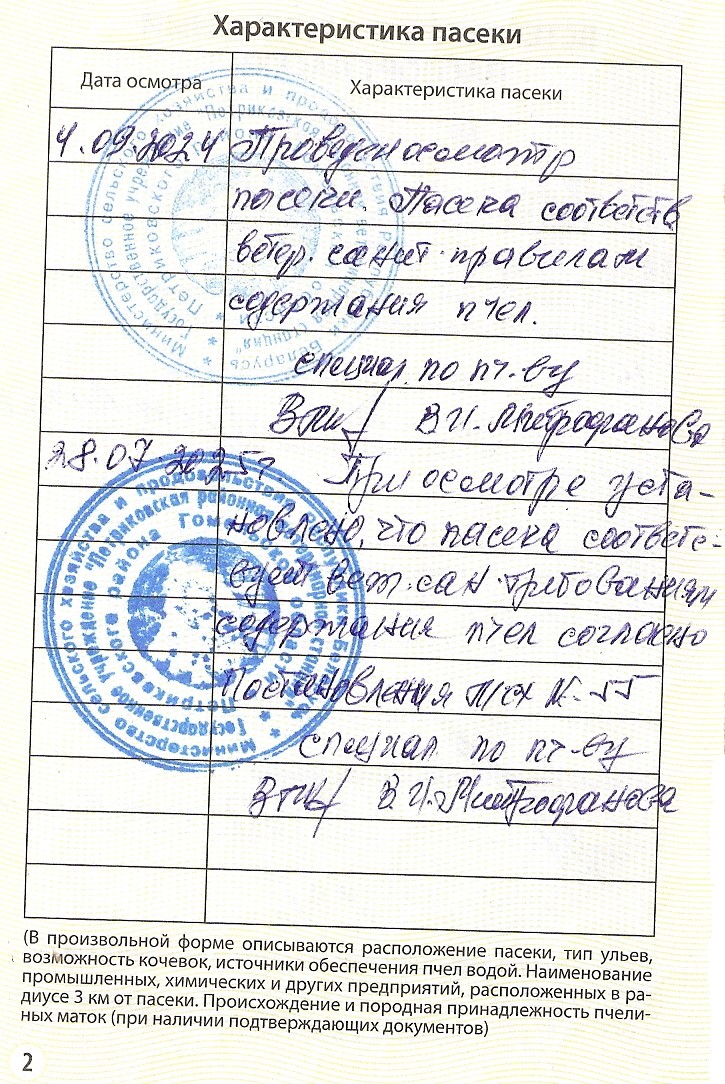 Характеристика пасеки
Дата осмотра
Характеристика пасеки
4.09.2024 Проведен осмотр
пасеки. Пасека соответств
ветер. санит. правилам
содержания пчел.
специал. по пч-ву
В.И. Митрофанова
28.07.2025г При осмотре уста-
новлено, что пасека соответс-
вует вет. сан. требованиям
содержания пчел согласно
Постановления МСХ №55
специал по пч-ву
В.И. Митрофанова
Министерство сельского хозяйства и продовольствия Республики Беларусь
Государственное учреждение "Петриковская районная ветеринарная станция"
Петриковского района Гомельской области
(В произвольной форме описываются расположение пасеки, тип ульев,
возможность кочевок, источники обеспечения пчел водой. Наименование
промышленных, химических и других предприятий, расположенных в ра-
диусе 3 км от пасеки. Происхождение и породная принадлежность пчели-
ных маток (при наличии подтверждающих документов)
2